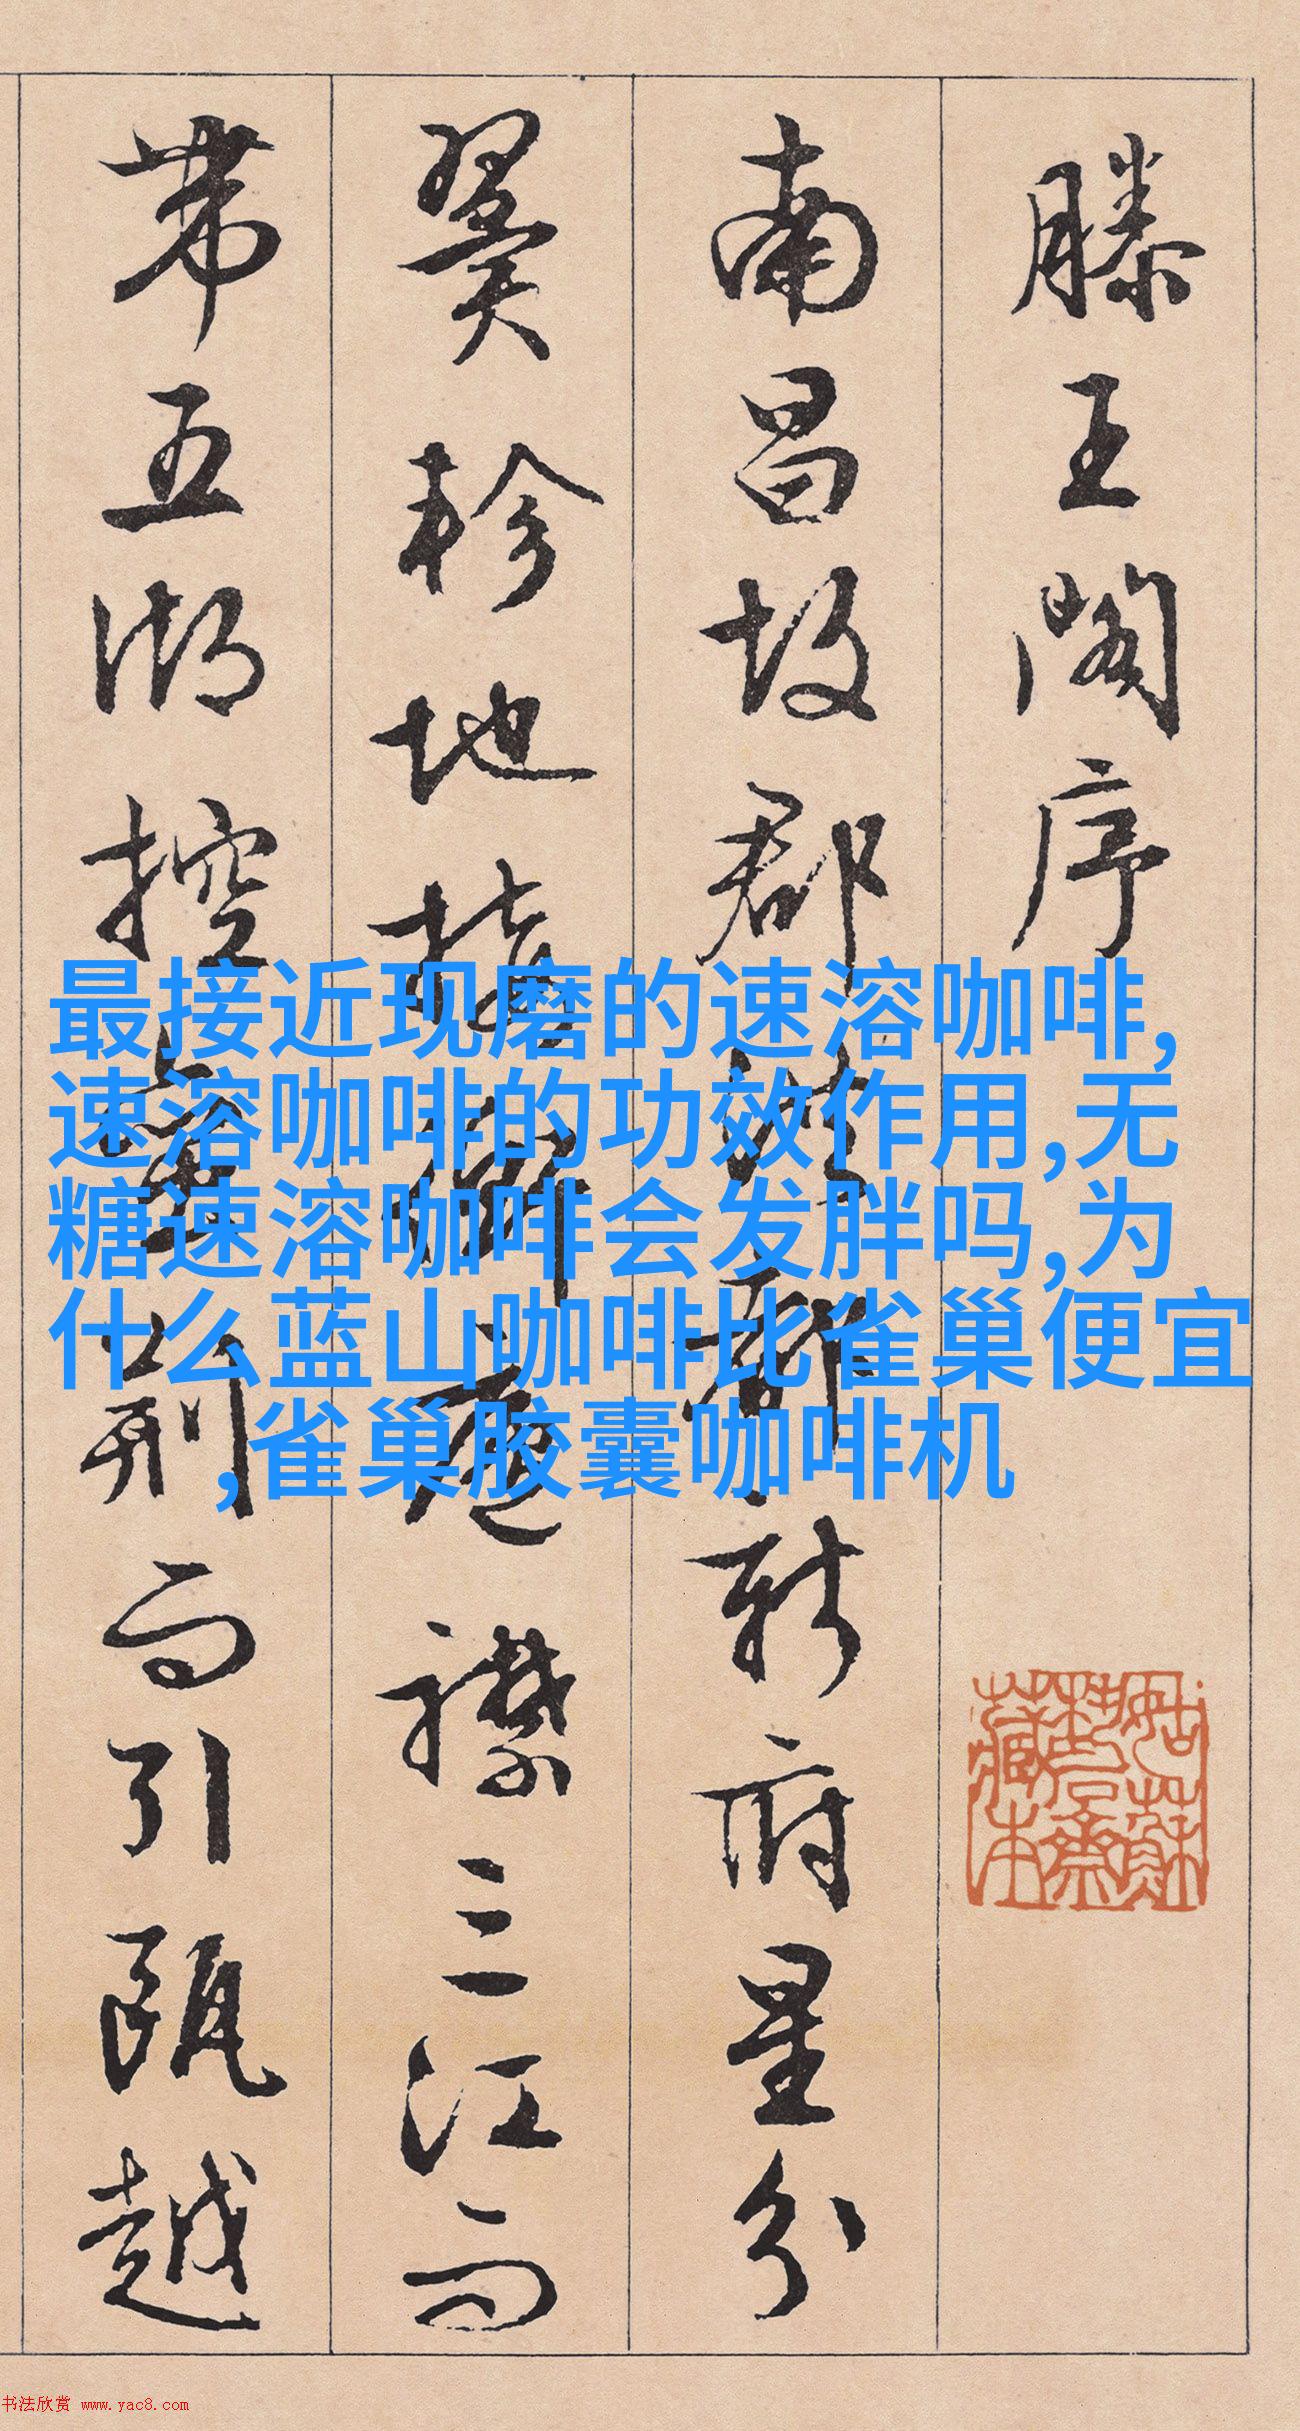 滕王閣序
南昌故郡洪都新府星分
翼軫地接衡廬襟三江而
帶五湖控蠻荆而引甌越
最接近现磨的速溶咖啡,
速溶咖啡的功效作用,无
糖速溶咖啡会发胖吗,为
什么蓝山咖啡比雀巢便宜
,雀巢胶囊咖啡机
书法欣赏 www.yac8.com